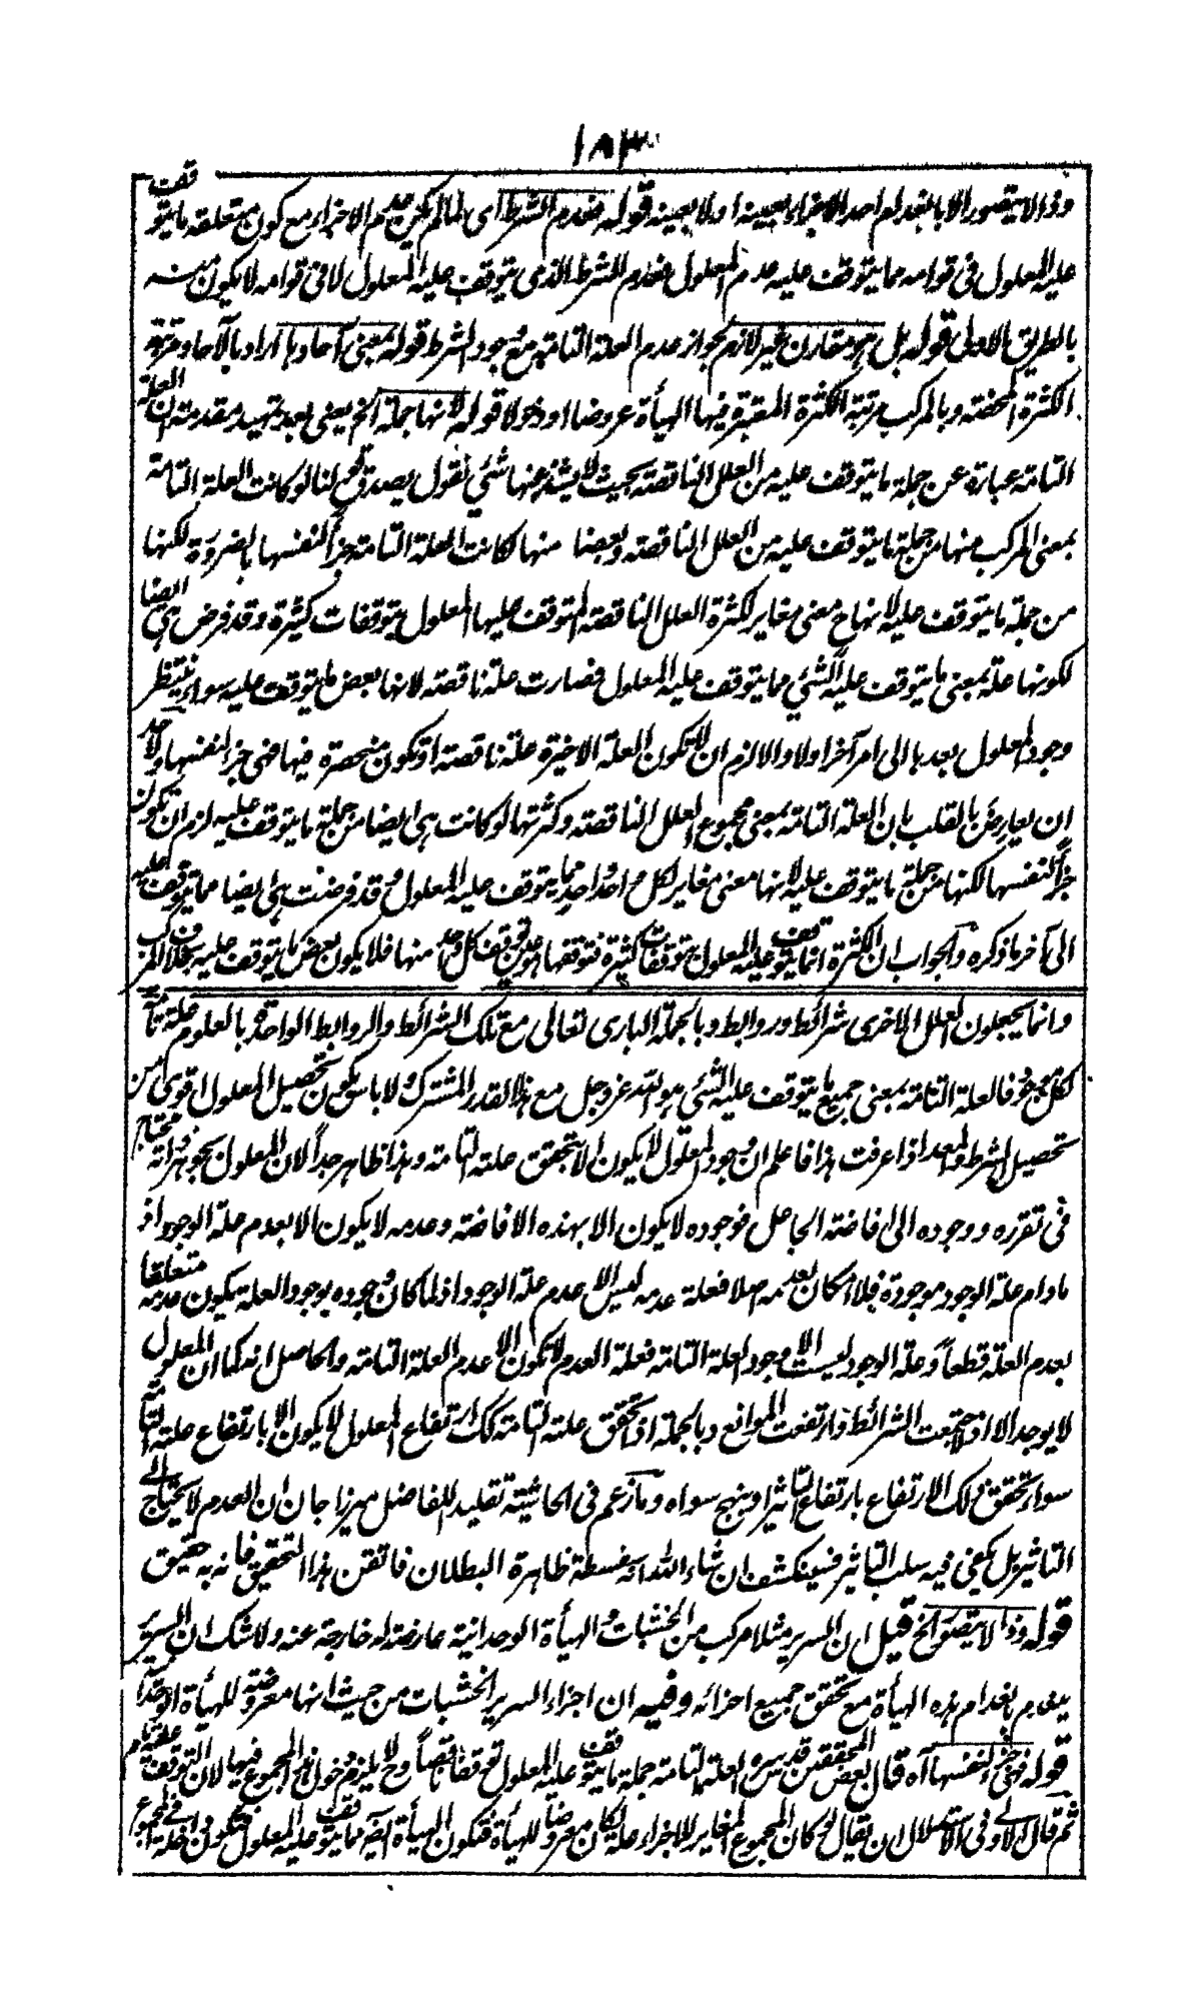 ١٨٣
وذا لا يتصور الا بانعدام احد الاجزاء بعينه او لا بعينه قوله فعدم الشرط اى لما لم يكن عدم الاجزاء مع كون متعلقه ما يتوقف
عليه المعلول فى قوامه مما يتوقف عليه عدم المعلول فعدم الشرط الذى يتوقف عليه المعلول لا فى قوامه لا يكون منه
بالطريق الاولى قوله بل هو مقارن غير لازم لجواز عدم العلة التامة مع وجود الشرط قوله بمعنى آحادها اراد بالآحاد مرتبة
الكثرة المحضة وبالمركب مرتبة الكثرة المعتبرة فيها الهيأة عروضا او دخولا قوله لانها جملة الخ يعنى بعد تمهيد مقدمة ان العلة
التامة عبارة عن جملة ما يتوقف عليه من العلل الناقصة بحيث لا يشذ عنها شئ نقول يصدق ح لنا لو كانت العلة التامة
بمعنى المركب منها من جملة ما يتوقف عليه من العلل الناقصة وبعضا منها لكانت العلة التامة جزأ لنفسها بالضرورة لكنها
من جملة ما يتوقف عليه لانها ح معنى مغاير لكثرة العلل الناقصة المتوقف عليها المعلول بتوقفات كثيرة وقد فرض هى ايضا
لكونها علة بمعنى ما يتوقف عليه الشئ مما يتوقف عليه المعلول فصارت علة ناقصة لانها بعض ما يتوقف عليه سواء ينتظر
وجود المعلول بعدها الى امر آخر اولا والا لزم ان لا تكون العلة الاخيرة علة ناقصة او تكون منحصرة فيها فهى جزء لنفسها ولاحد
ان يعارض بالقلب بان العلة التامة بمعنى مجموع العلل الناقصة وكثرتها لو كانت هى ايضا من جملة ما يتوقف عليه لزم ان تكون
جزأ لنفسها لكنها من جملة ما يتوقف عليه لانها معنى مغاير لكل واحد واحد مما يتوقف عليه المعلول وقد فرضت هى ايضا مما يتوقف عليه
الى آخر ما ذكره والجواب ان الكثرة انما يتوقف عليه المعلول بتوقفات كثيرة فتوقفها هو توقف كل واحد واحد منها فلا يكون بعض ما يتوقف عليه بخلاف المركب
وانما يجعلون العلل الاخرى شرائط وروابط وبالجملة البارى تعالى مع تلك الشرائط والروابط الواحدة بالعلوم علة تامة
لكل موجود فالعلة التامة بمعنى جميع ما يتوقف عليه الشئ هو الله عز وجل مع هذا القدر المشترك ولا باس بكون تحصيل المعلول اقوى من
تحصيل الشرط والمعد اذا عرفت هذا فاعلم ان وجود المعلول لا يكون الا بتحقق علته التامة وهذا ظاهر جداً لان المعلول بجوهر ذاته محتاج
فى تقرره ووجوده الى افاضة الجاعل فوجوده لا يكون الا بهذه الافاضة وعدمه لا يكون الا بعدم علة الوجود اذ
ما دام علة الوجود موجودة فلا امكان لعدمه اصلا فعلة عدمه ليس الا عدم علة الوجود اذ لما كان وجوده بوجود العلة يكون عدمه متعلقا
بعدم العلة قطعاً وعلة الوجود ليست الا وجود العلة التامة فعلة العدم لا تكون الا عدم العلة التامة والحاصل انه كما ان المعلول
لا يوجد الا اذا اجتمعت الشرائط وارتفعت الموانع وبالجملة اذا تحقق علته التامة كك ارتفاع المعلول لا يكون الا بارتفاع علته التامة
سواء تحقق ذلك الارتفاع بارتفاع التاثير او بنهج سواه وما زعم فى الحاشية تقليد للفاضل ميرزا جان ان العدم لا يحتاج الى
التاثير بل يكفى فيه سلب التاثير فسينكشف ان شاء الله انه سفسطة ظاهرة البطلان فاتقن هذا التحقيق فانه به حقيق
قوله وذا لا يتصور الخ قيل ان السرير مثلا مركب من الخشبات والهيأة الوحدانية عارضة له خارجة عنه ولا شك ان السرير
ينعدم بانعدام هذه الهيأة مع تحقق جميع اجزائه وفيه ان اجزاء السرير الخشبات من حيث انها معروضة للهيأة الوحدانية
قوله فهى جزء لنفسها آه قال بعض المحققين قدس سره العلة التامة جملة ما يتوقف عليه المعلول توقفا ناقصاً وح لا يلزم دخول هذا المجموع فيها لان التوقف عليه تام
ثم قال الاولى فى الاستدلال ان يقال لو كان المجموع المغاير للاجزاء علة لكان معروضا للهيأة فتكون الهيأة ايضا مما يتوقف عليه المعلول فتكون داخلة فى المجموع